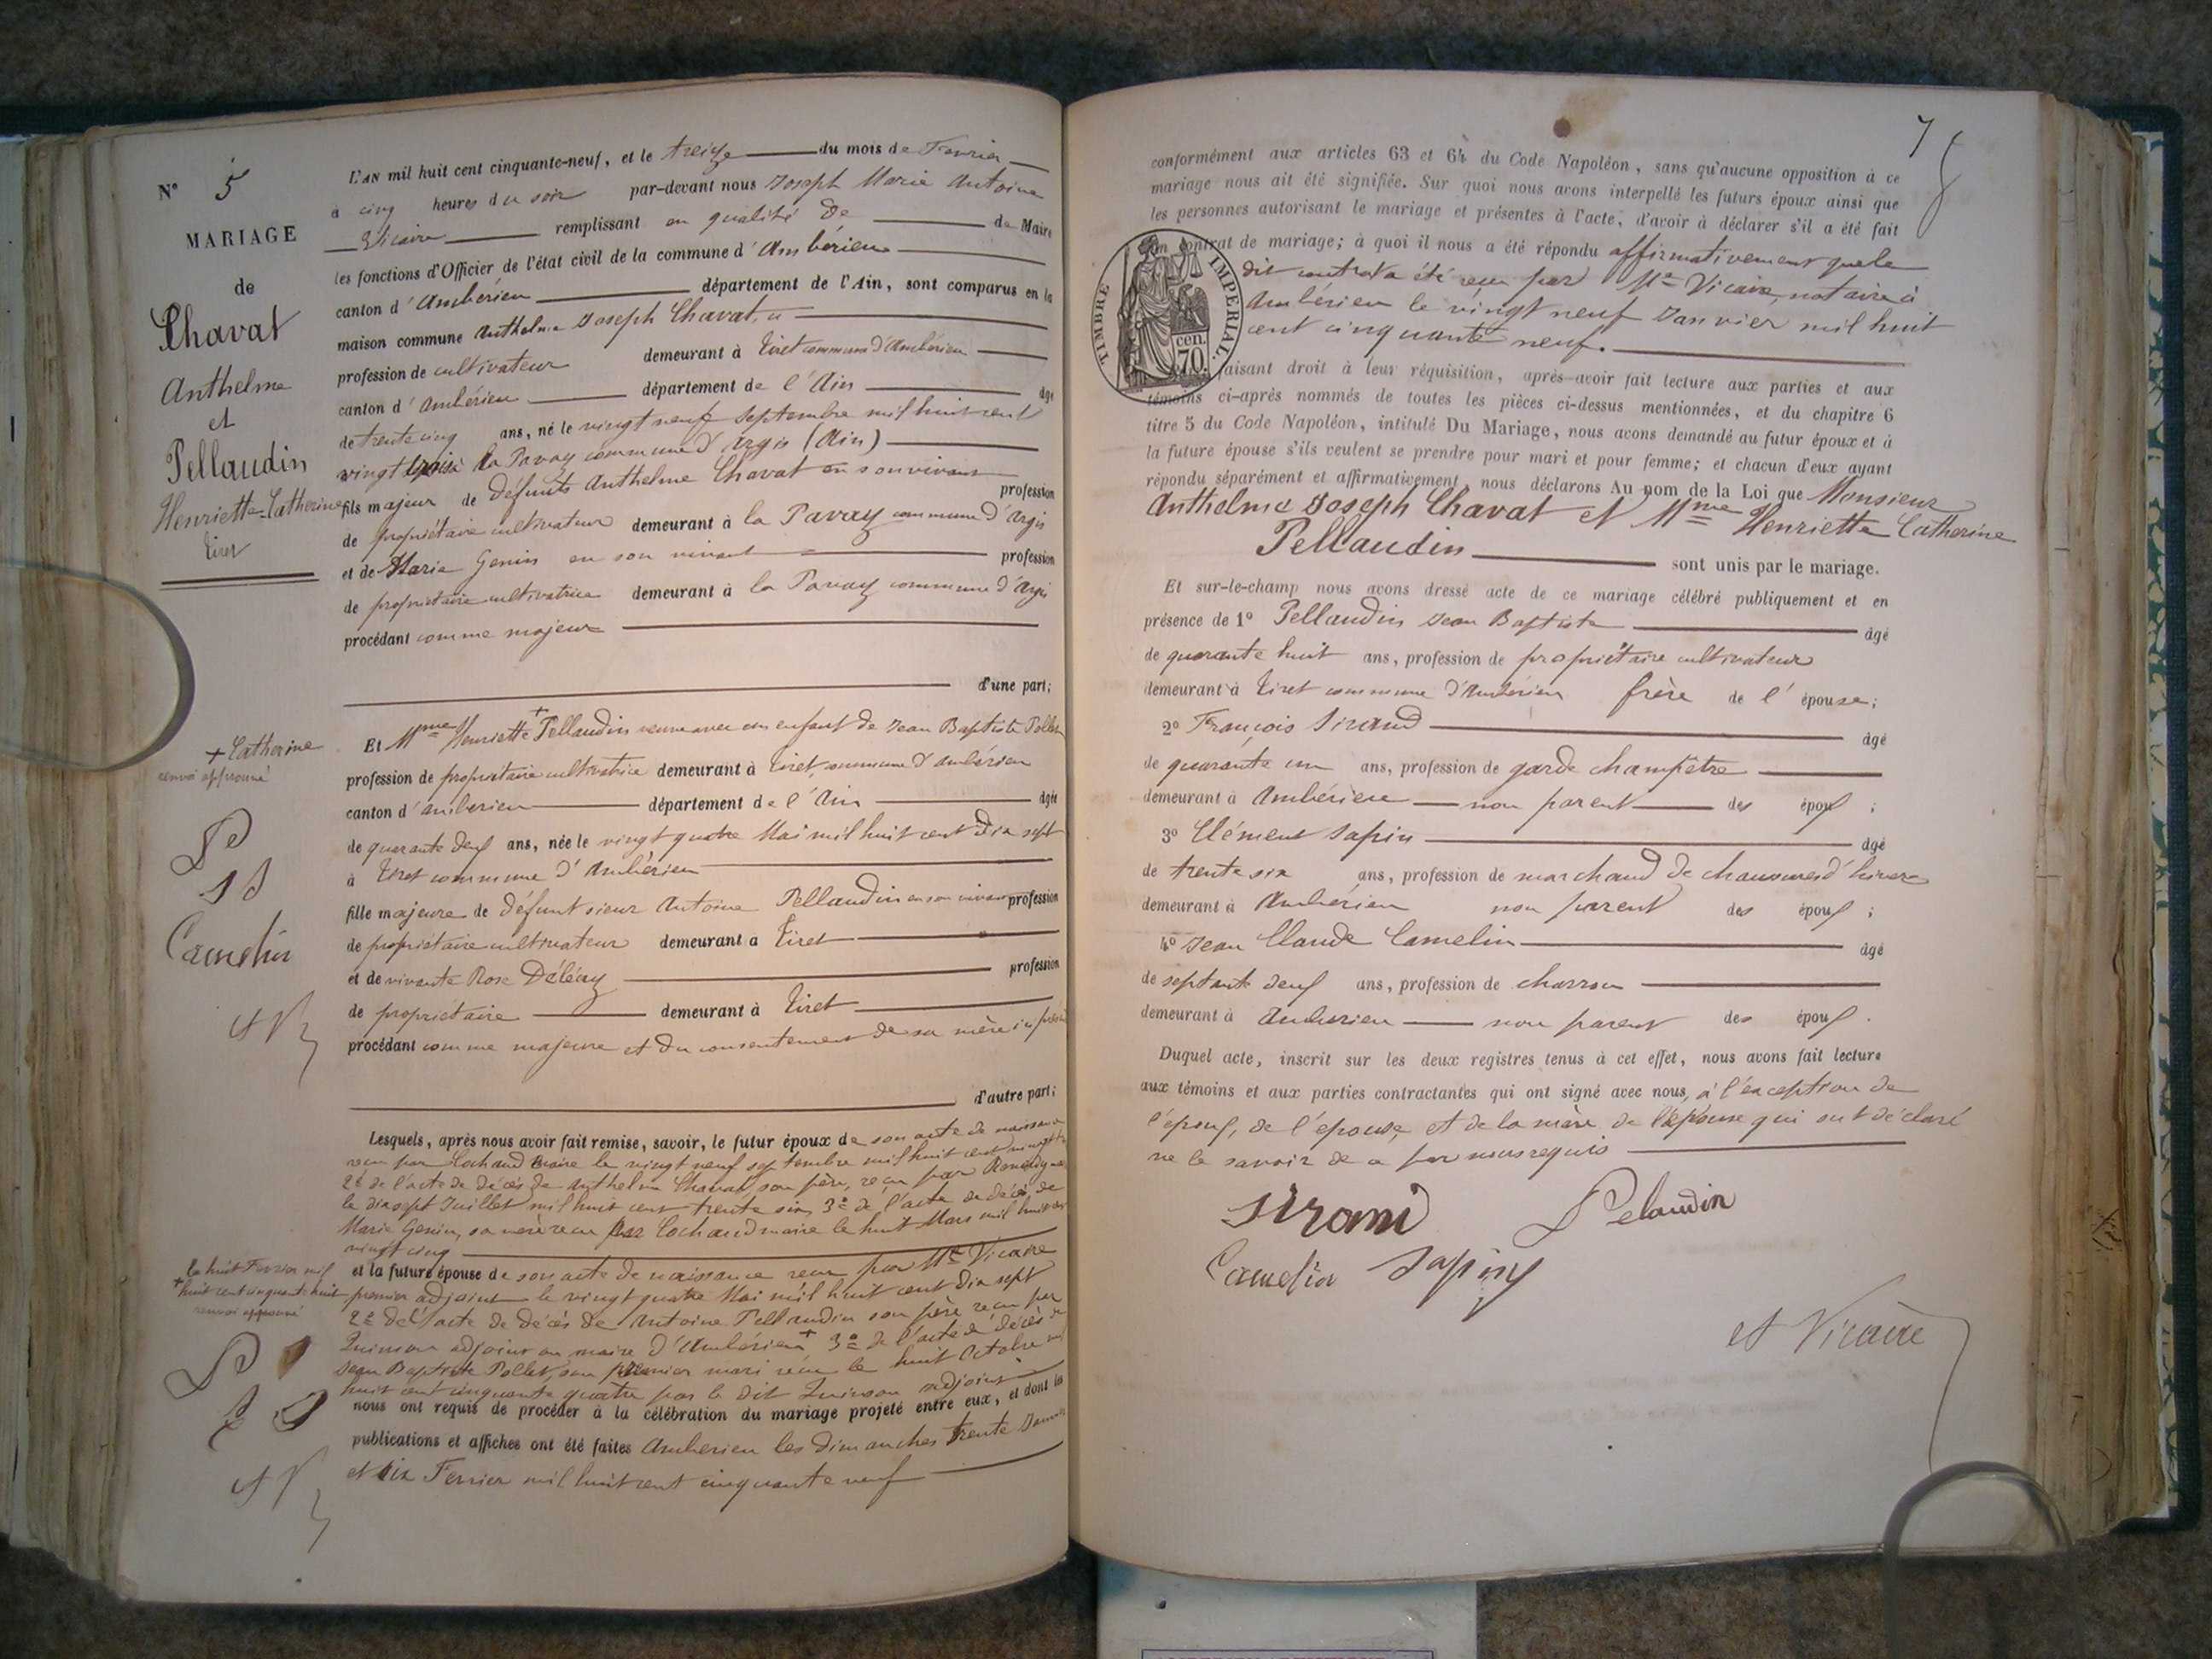 N° 5
MARIAGE
de
Chavat
Anthelme
et
Pellaudin
Henriette-Catherine
Tiret
L'AN mil huit cent cinquante-neuf, et le treize du mois de Fevrier
à cinq heures du soir par-devant nous Joseph Marie Antoine
Vicaire remplissant en qualité de de Maire
les fonctions d'Officier de l'état civil de la commune d'Ambérieu
canton d'Ambérieu département de l'Ain, sont comparus en la
maison commune Anthelme Joseph Chavat,
profession de cultivateur demeurant à Tiret commune d'Ambérieu
canton d'Ambérieu département de l'Ain âgé
de trente cinq ans, né le vingt neuf Septembre mil huit cent
vingt trois à la Pavaz commune d'Argis (Ain)
fils majeur de défunts Anthelme Chavat en son vivant profession
de propriétaire cultivateur demeurant à la Pavaz commune d'Argis
et de Marie Genin en son vivant profession
de propriétaire cultivatrice demeurant à la Pavaz commune d'Argis
procédant comme majeur
d'une part;
Et Mme Henriette + Pellaudin veuve avec un enfant de Jean Baptiste Pollet
+ Catherine
renvoi approuvé
profession de propriétaire cultivatrice demeurant à Tiret, commune d'Ambérieu
canton d'Ambérieu département de l'Ain âgée
de quarante deux ans, née le vingt quatre Mai mil huit cent dix sept
à Tiret commune d'Ambérieu
fille majeure de défunt sieur Antoine Pellaudin en son vivant profession
de propriétaire cultivateur demeurant à Tiret
Camelin
et de vivante Rose Déléaz profession
de propriétaire demeurant à Tiret
et V
procédant comme majeure et du consentement de sa mère ici présente
d'autre part;
Lesquels, après nous avoir fait remise, savoir, le futur époux de son acte de naissance
reçu par Cochaud maire le vingt neuf septembre mil huit cent vingt
2° de l'acte de décès de Anthelme Chavat, son père, reçu par
le dix sept Juillet mil huit cent trente six, 3° de l'acte de décès de
Marie Genin, sa mère reçu par Cochaud maire le huit Mars mil huit cent
vingt cinq
et la future épouse de son acte de naissance reçu par Me Vicaire
+ le huit Fevrier mil
huit cent cinquante huit
renvoi approuvé
premier adjoint le vingt quatre Mai mil huit cent dix sept
2° de l'acte de décès de Antoine Pellaudin son père reçu par
Quinson adjoint au maire d'Ambérieu + 3° de l'acte de décès de
Jean Baptiste Pollet, son premier mari reçu le huit Octobre mil
huit cent cinquante quatre par le dit Quinson adjoint
nous ont requis de procéder à la célébration du mariage projeté entre eux, et dont les
publications et affiches ont été faites Ambérieu les dimanches trente Janvier
et six Fevrier mil huit cent cinquante neuf
et V
7
conformément aux articles 63 et 64 du Code Napoléon, sans qu'aucune opposition à ce
mariage nous ait été signifiée. Sur quoi nous avons interpellé les futurs époux ainsi que
les personnes autorisant le mariage et présentes à l'acte, d'avoir à déclarer s'il a été fait
un contrat de mariage; à quoi il nous a été répondu affirmativement que le
dit contrat a été reçu par Me Vicaire, notaire à
Ambérieu le vingt neuf Janvier mil huit
cent cinquante neuf.
TIMBRE IMPERIAL.
70 cen.
faisant droit à leur réquisition, après avoir fait lecture aux parties et aux
témoins ci-après nommés de toutes les pièces ci-dessus mentionnées, et du chapitre 6
titre 5 du Code Napoléon, intitulé Du Mariage, nous avons demandé au futur époux et à
la future épouse s'ils veulent se prendre pour mari et pour femme; et chacun d'eux ayant
répondu séparément et affirmativement, nous déclarons Au nom de la Loi que Monsieur
Anthelme Joseph Chavat et Mme Henriette Catherine
Pellaudin sont unis par le mariage.
Et sur-le-champ nous avons dressé acte de ce mariage célébré publiquement et en
présence de 1° Pellaudin Jean Baptiste âgé
de quarante huit ans, profession de propriétaire cultivateur
demeurant à Tiret commune d'Ambérieu frère de l'épouse;
2° François Sirand âgé
de quarante un ans, profession de garde champêtre
demeurant à Ambérieu non parent des époux;
3° Clément Sapin âgé
de trente six ans, profession de marchand de chaussures d'hiver
demeurant à Ambérieu non parent des époux;
4° Jean Claude Camelin âgé
de septante deux ans, profession de charron
demeurant à Ambérieu non parent des époux.
Duquel acte, inscrit sur les deux registres tenus à cet effet, nous avons fait lecture
aux témoins et aux parties contractantes qui ont signé avec nous, à l'exception de
l'époux, de l'épouse, et de la mère de l'épouse qui ont déclaré
ne le savoir de ce par nous requis
Sirand Pelaudin
Camelin Sapin
et Vicaire